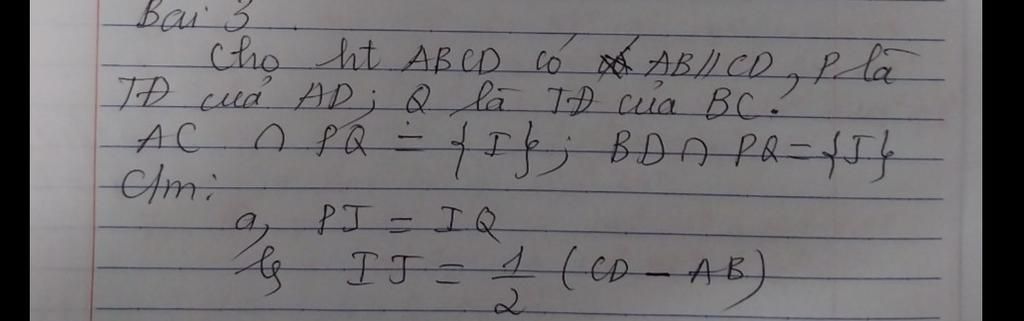 Bài 3
Cho ht ABCD có AB//CD, P là
TĐ của AD; Q là TĐ của BC.
AC ∩ PQ = {I}; BD ∩ PQ = {J}
C/m:
a, PJ = IQ
b, IJ = 1/2 (CD - AB)